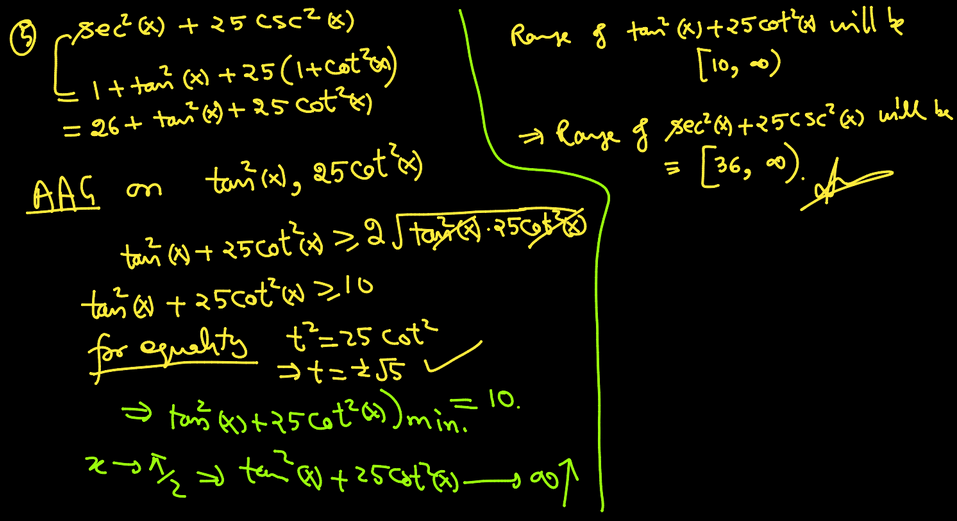 ⑤ sec²(x) + 25 csc²(x)
= 1 + tan²(x) + 25(1 + cot²(x))
= 26 + tan²(x) + 25 cot²(x)
AAG on tan²(x), 25cot²(x)
tan²(x) + 25cot²(x) ≥ 2√(tan²(x) · 25cot²(x))
tan²(x) + 25cot²(x) ≥ 10
for equality t² = 25 cot²
⇒ t = ±√5 ✓
⇒ tan²(x) + 25cot²(x))min. = 10.
x → π/2 ⇒ tan²(x) + 25cot²(x) → ∞ ↑
Range of tan²(x) + 25cot²(x) will be
[10, ∞)
⇒ Range of sec²(x) + 25csc²(x) will be
≡ [36, ∞).